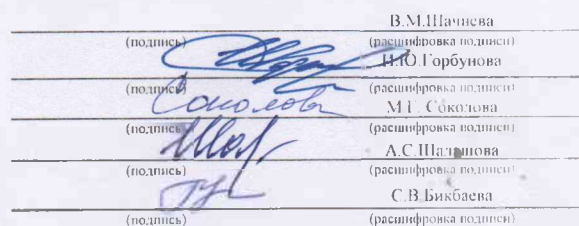 В.М.Шачнева
(подпись) (расшифровка подписи)
И.Ю.Горбунова
(подпись) (расшифровка подписи)
Соколова М.Г. Соколова
(подпись) (расшифровка подписи)
А.С.Шалашова
(подпись) (расшифровка подписи)
С.В.Бикбаева
(подпись) (расшифровка подписи)